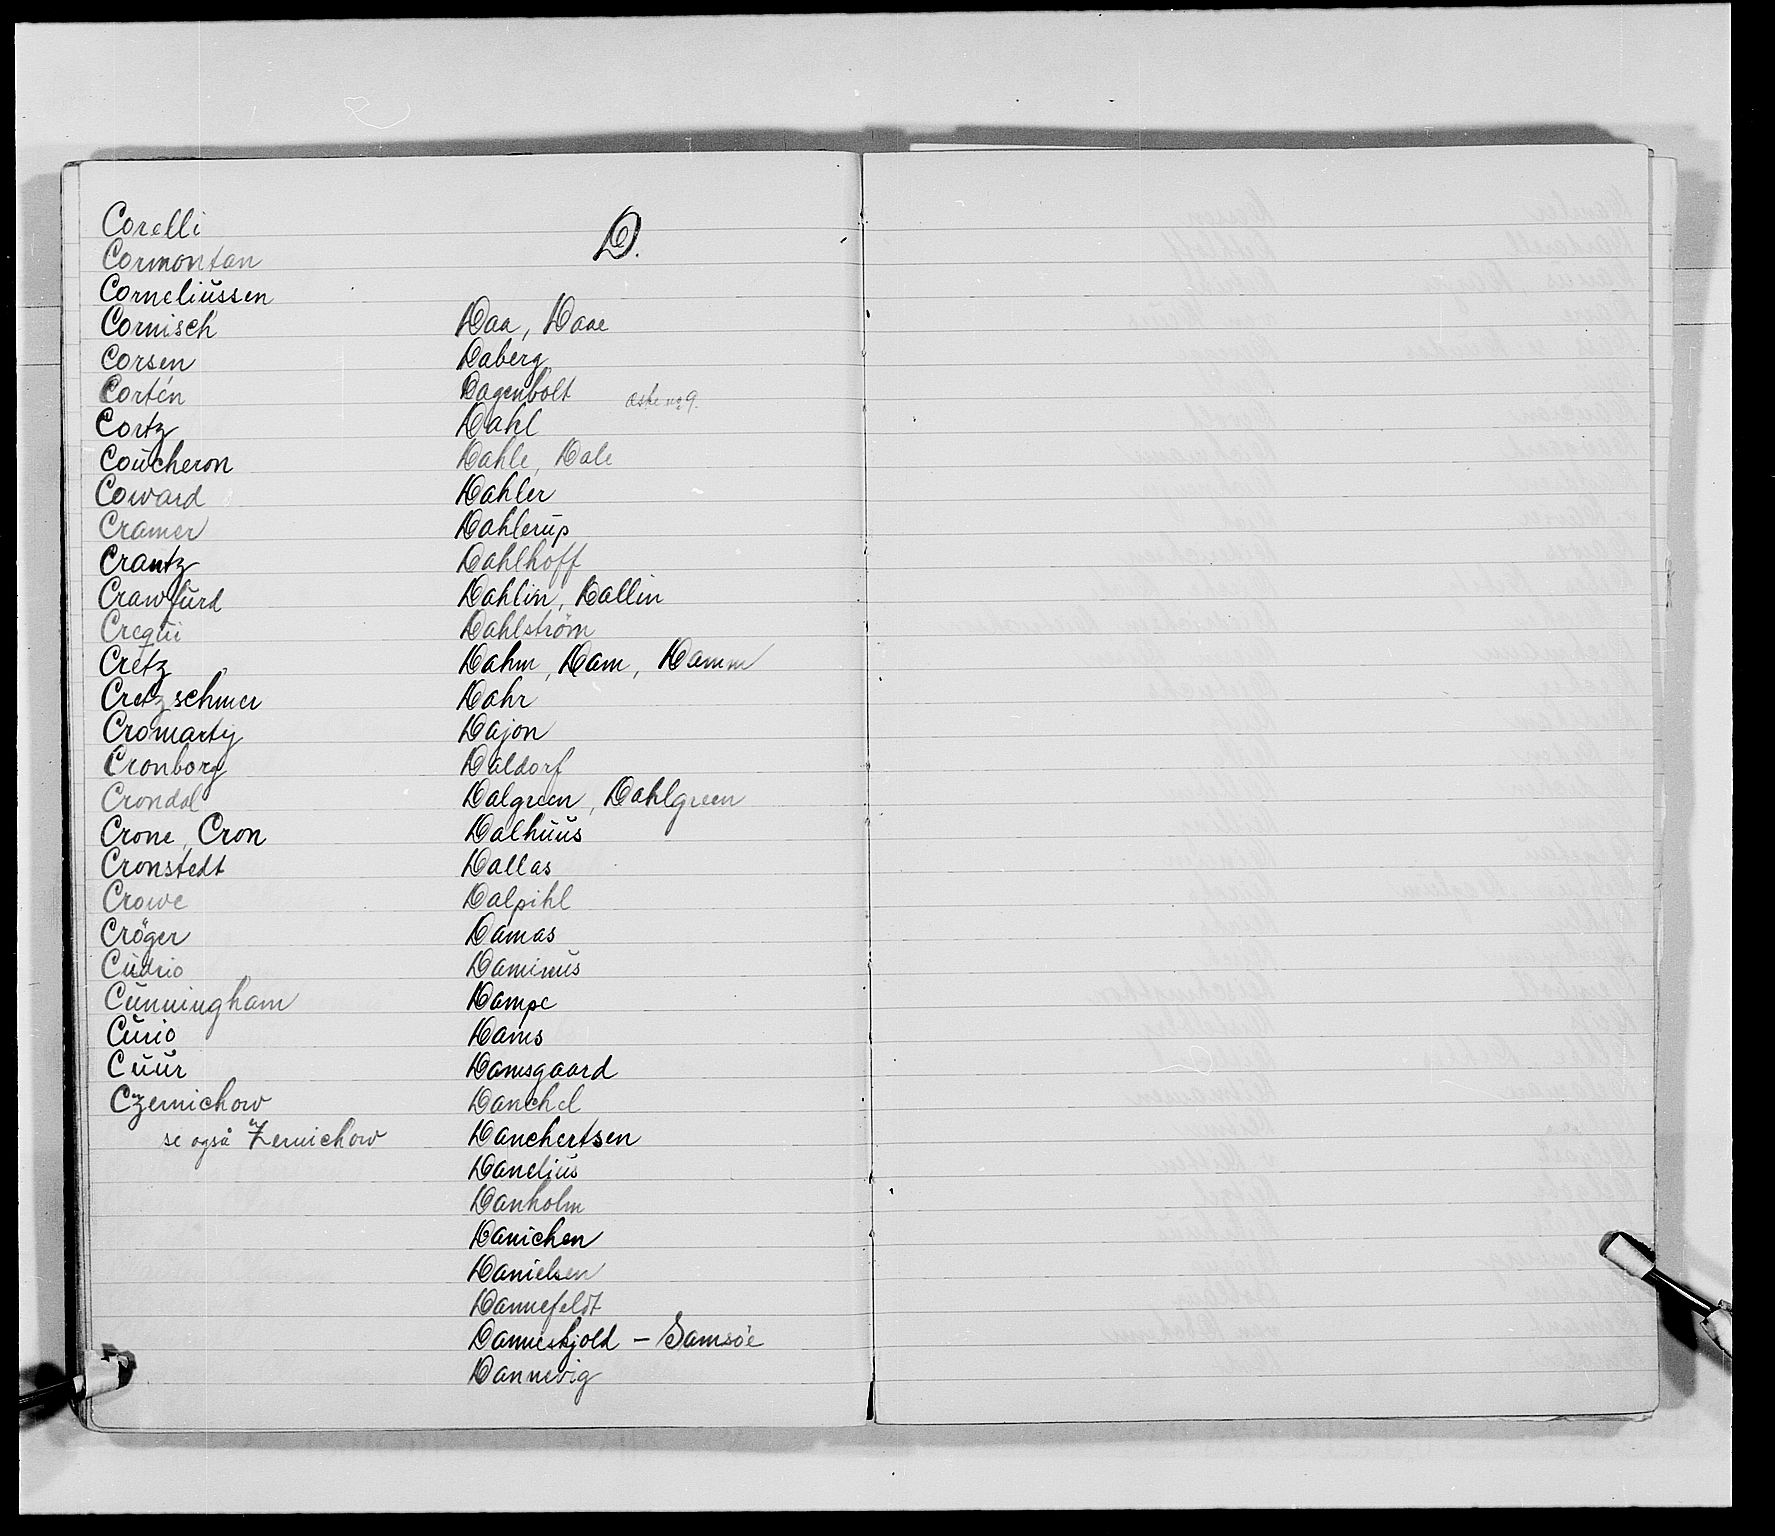 Corelli
Cormontan
Corneliŭssen
Cornisch
Corsen
Cortén
Cortz
Coŭcheron
Coward
Cramer
Crantz
Crawfŭrd
Creqŭi
Cretz
Cretzschmer
Cromarty
Cronborg
Crondal
Crone, Cron
Cronstedt
Crowe
Cröger
Cŭdrio
Cŭnningham
Cŭrio
Cŭŭr
Czernichow
se også Zernichow
D.
Daa, Daae
Daberg
Dagenbolt Æske no 9.
Dahl
Dahle, Dale
Dahler
Dahlerŭp
Dahlhoff
Dahlin, Dallin
Dahlström
Dahm, Dam, Damm
Dahr
Dajon
Daldorf
Dalgreen, Dahlgreen
Dalhŭŭs
Dallas
Dalpihl
Damas
Daminŭs
Dampe
Dams
Damsgaard
Danchel
Danchertsen
Daneliŭs
Danholm
Danichen
Danielsen
Dannefeldt
Danneskjold - Samsöe
Dannevig